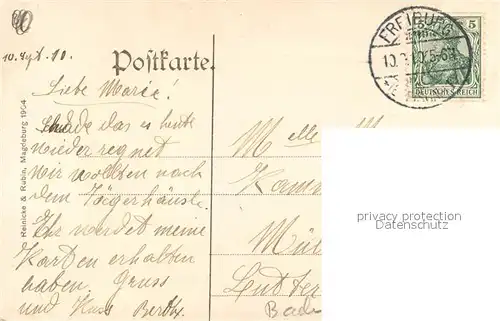 10. Sept. 10.
Postkarte.
Liebe Marie!
Schade das es heute
wieder regnet
wir wollten nach
dem Jägerhäusle.
Ihr werdet meine
Karten erhalten
haben. Gruss
und Kuss Berth.
Reinicke & Rubin, Magdeburg 1904
FREIBURG
10. 5-6
5
DEUTSCHES REICH
Melle M
privacy protection
Datenschutz
Bad